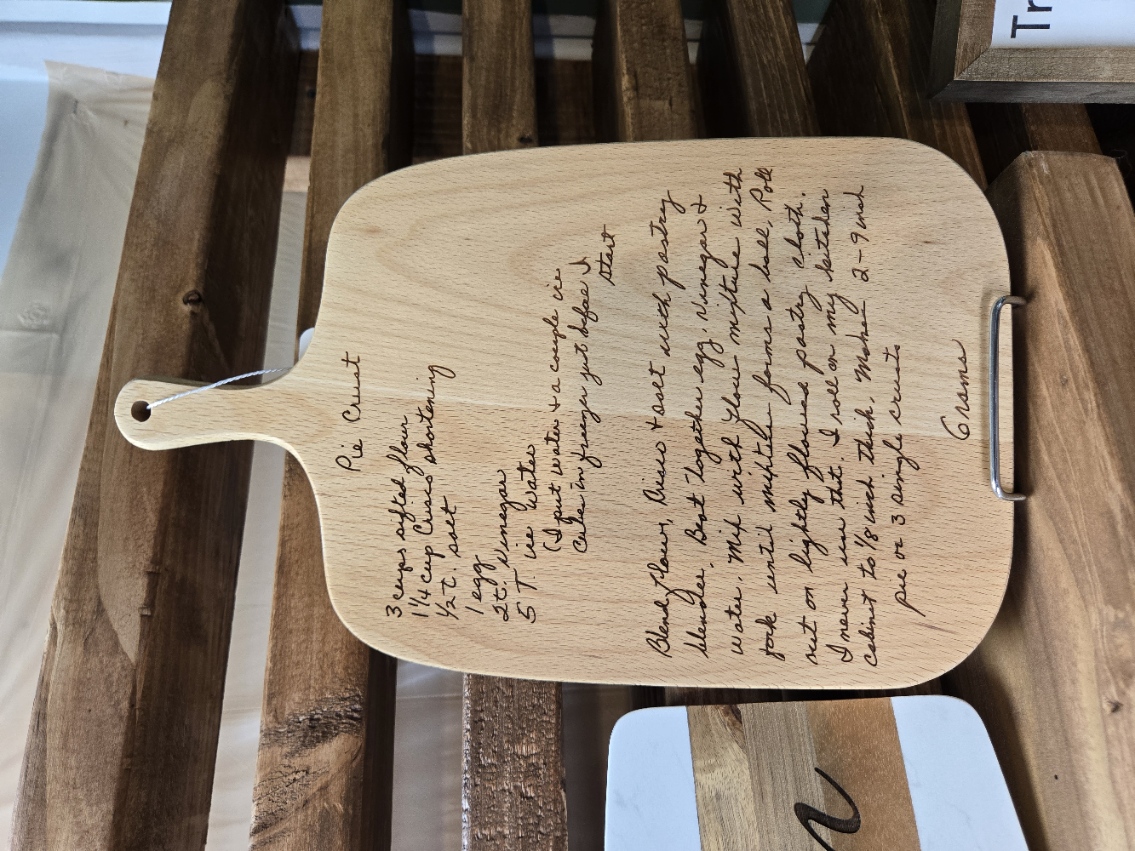 Pie Crust
3 cups sifted flour
1 1/4 cup Crisco shortening
1/2 t. salt
1 egg
2t. vinegar
5 T. ice water
(I put water & a couple ice
cubes in freezer just before I
start
Blend flour, Crisco & salt with pastry
blender. Beat together egg, vinegar &
water. Mix with flour mixture with
fork until mixture forms a ball. Roll
out on lightly floured pastry cloth.
I never use that. I roll on my kitchen
cabinet to 1/8 inch thick. Makes 2-9 inch
pie or 3 single crusts
Grams
Tr